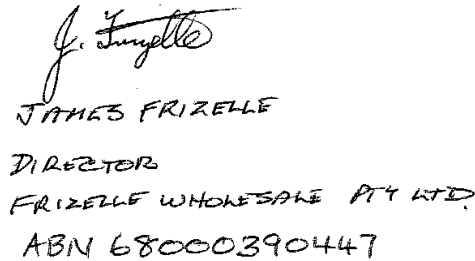 J. Frizelle
JAMES FRIZELLE
DIRECTOR
FRIZELLE WHOLESALE PTY LTD.
ABN 68000390447